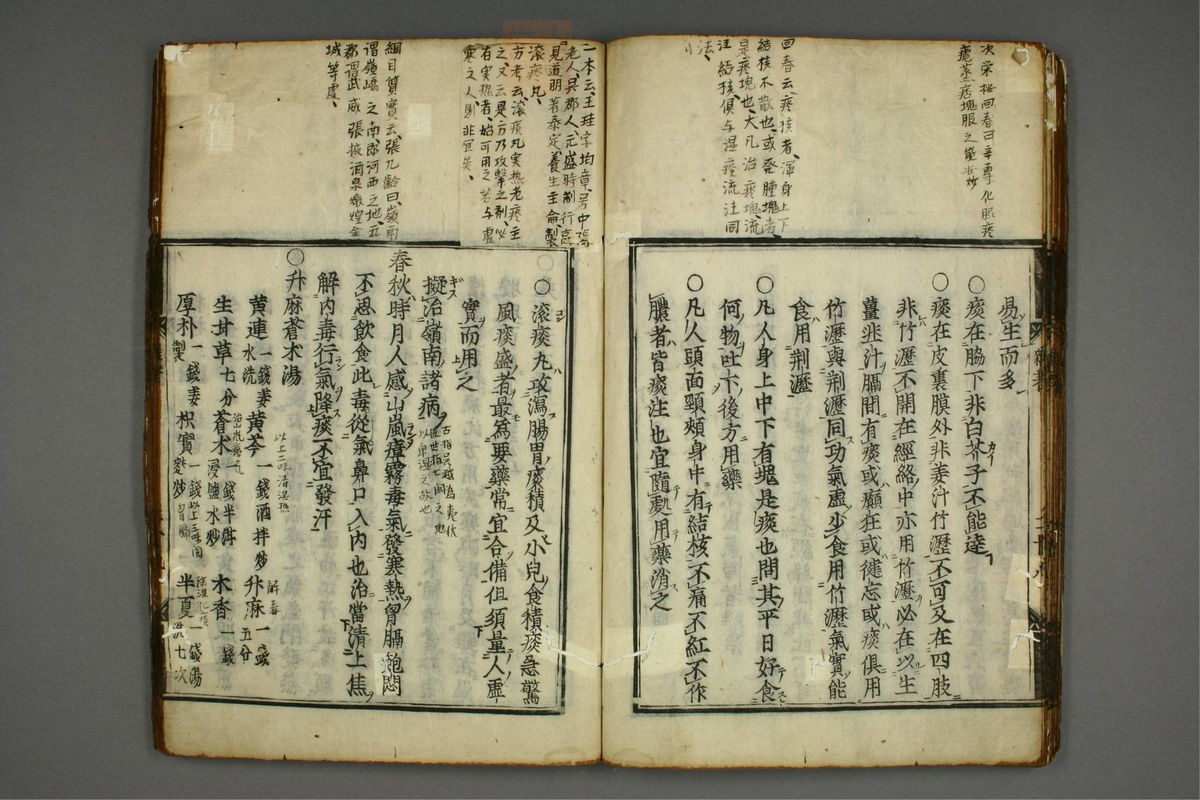 次栄枢回春曰辛専化脹痞
回春云痰核者渾身上下
結核不散也或発腫塊者
是痰塊也大凡治痰塊流
注結核俱与湿痰流注同
法
易生而多
○痰在脇下非白芥子不能達
○痰在皮裏膜外非姜汁竹瀝不可及在四肢
非竹瀝不開在經絡中亦用竹瀝必在以生
薑韭汁膈間有痰或癲狂或健忘或痰俱用
竹瀝與荆瀝同功氣虛少食用竹瀝氣實能
食用荆瀝
○凡人身上中下有塊是痰也問其平日好食
何物吐下後方用藥
○凡人頭面頸頰身中有結核不痛不紅不作
膿者皆痰注也宜隨處用藥消之
一本云王珪字均章号中陽
老人呉郡人元盛時制行高
見道明著泰定養生主論製
滚痰凡
方考云滚痰凡実熱老痰主
之又云是方乃攻撃之剤必
有実熱者始可用之若与虚
寒之人則非宜矣
綱目質實云張九齢曰嶺南
謂嶺嶠之南郎河西之地五
郡謂武威張掖酒泉燉煌金
城等處
○滚痰丸攻瀉腸胃痰積及小兒食積痰急驚
風痰盛者最爲要藥常宜合備但須量人虛
實而用之
擬治嶺南諸病
春秋時月人感山嵐瘴霧毒氣發寒熱胷膈飽悶
不思飲食此毒從氣鼻口入内也治當清上焦
解内毒行氣降痰不宜發汗
○升麻蒼术湯
以上二味清湿熱
解毒
黄連一錢姜水洗 黄芩一錢酒拌炒 升麻一錢五分
生甘草七分 蒼术一錢半泔浸鹽水炒 木香一錢
厚朴一錢姜製 枳實一錢麩炒 半夏一錢湯洗七次